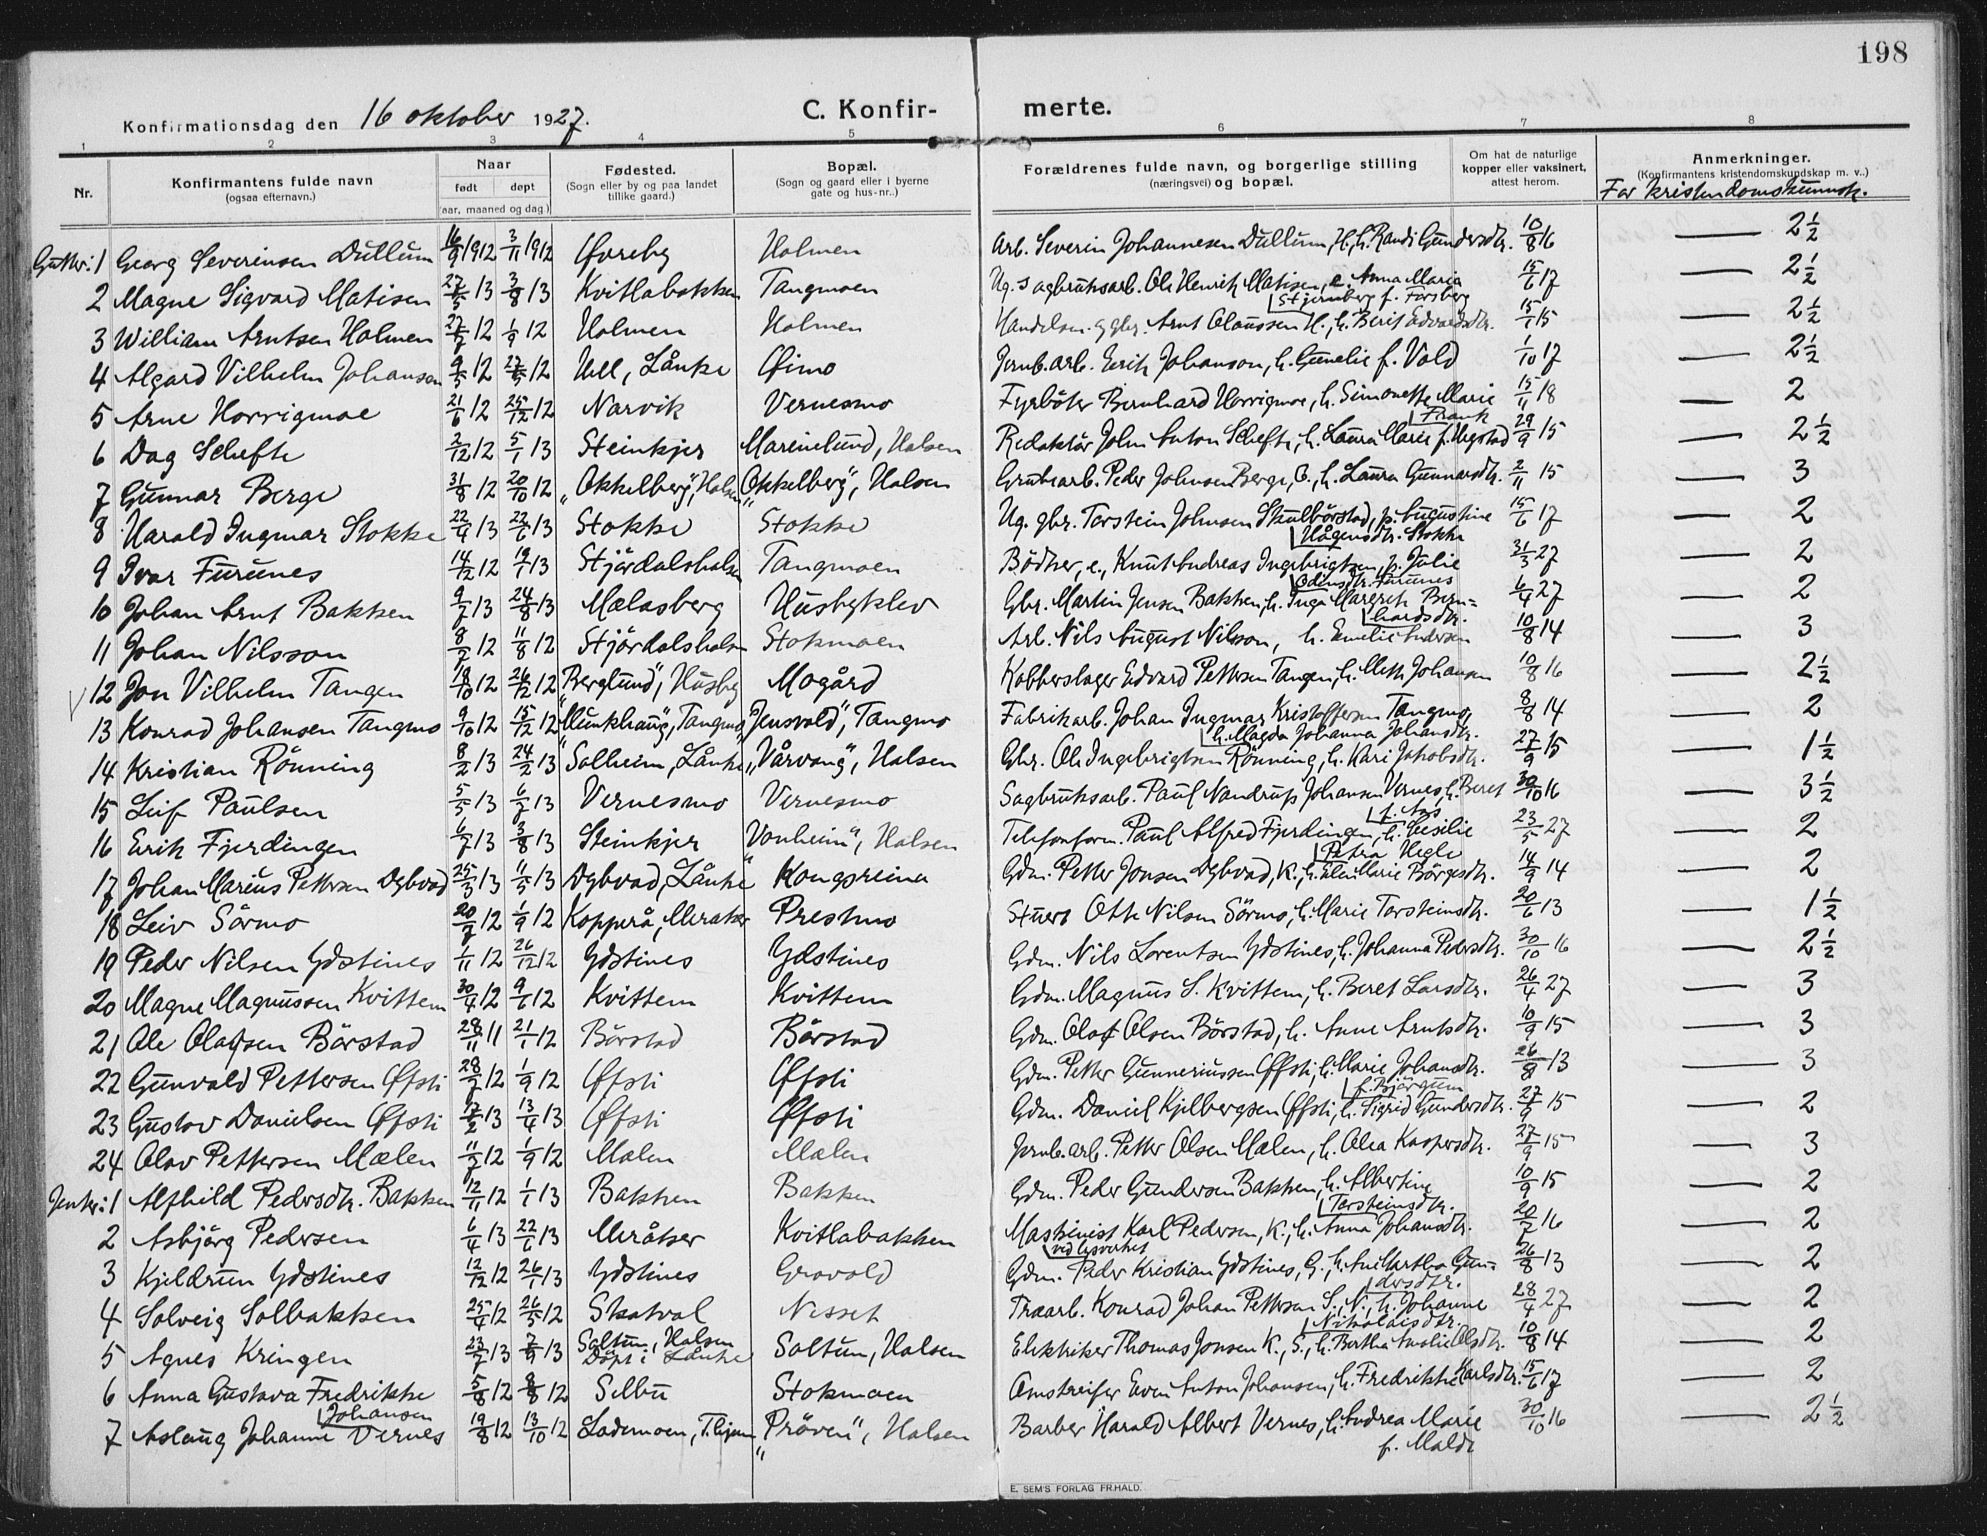 198
Konfirmationsdag den 16 oktober 1927.
C. Konfir- merte.
1 2 3 4 5 6 7 8
Nr.
Konfirmantens fulde navn
(ogsaa efternavn.)
Naar
født døpt
(aar, maaned og dag)
Fødested.
(Sogn eller by og paa landet
tillike gaard.)
Bopæl.
(Sogn og gaard eller i byerne
gate og hus-nr..)
Forældrenes fulde navn, og borgerlige stilling
(næringsvei) og bopæl.
Om hat de naturlige
kopper eller vaksinert,
attest herom.
Anmerkninger.
(Konfirmantens kristendomskundskap m. v..)
For kristendomskunnsk.
Gutter: 1 Georg Severinsen Dullum 16/9 1912 3/11 1912 Øvreby Holmen Arb. Severin Johannesen Dullum, H., h. Randi Gundersdtr. 10/8 16 — 2 1/2
2 Magne Sigvard Matisen 27/5 13 3/8 13 Kvitlabakken Tangmoen Ug. sagbruksarb. Ole Henrik Matisen, e. Anna Maria 15/6 17 — 2 1/2
Stjernberg f. Forsberg
3 William Arntsen Holmen 27/7 12 1/9 12 Holmen Holmen Handelsm. og gbr. Arnt Olaussen H., h. Berit Edvardsdtr. 15/1 15 — 2 1/2
4 Algard Vilhelm Johansen 9/5 12 27/5 12 Hell, Lånke Øimo Jernb.arb. Erik Johanson, h. Gunelie f. Vold 1/10 17 — 2 1/2
5 Arne Horrigmoe 21/6 12 25/12 12 Narvik Vernesmo Fyrbøter Bernhard Horrigmoe, h. Simonette Marie 15/11 18 — 2
Frank
6 Dag Schefte 2/12 12 5/1 13 Steinkjer Marinelund, Halsen Redaktør John Anton Schefte, h. Laura Marie f. Vegstad 29/9 15 — 2 1/2
7 Gunnar Berge 31/8 12 20/10 12 "Okkelberg", Halsen "Okkelberg", Halsen Grubearb. Peder Johnsen Berge, O., h. Laura Gunnarsdtr. 2/11 15 — 3
8 Harald Ingmar Stokke 22/4 13 22/6 13 Stokke Stokke Ug. gbr. Torstein Johnsen Skulbörstad, p. Augustine 15/6 17 — 2
Hågensdtr. Stokke
9 Ivar Furunes 14/12 12 19/1 13 Stjördalshalsen Tangmoen Bödker, e., Knut Andreas Ingebrigtsen, p. Julie 31/3 27 — 2
Odinsdtr. Furunes
10 Johan Arnt Bakken 9/7 13 24/8 13 Mælasberg Husbyklev Gbr. Martin Jensen Bakken, h. Inga Margreth Bern= 6/4 27 — 2
hardsdtr.
11 Johan Nilsson 8/7 12 11/8 12 Stjördalshalsen Stokmoen Arb. Nils August Nilsson, h. Emelie Andersen 10/8 14 — 3
12 Jon Vilhelm Tangen 18/10 12 26/12 12 "Berglund", Husby Mogård Kobberslager Edvard Pettersen Tangen, h. Meth Johansen 10/8 16 — 2 1/2
13 Konrad Johansen Tangmo 9/10 12 15/12 12 "Munkhaug", Tangmo "Jensvold", Tangmo Fabrikarb. Johan Ingmar Kristoffersen Tangmo, 8/8 14 — 2
h. Magda Johanna Johansdtr.
14 Kristian Rönning 8/2 13 24/2 13 "Solheim, Lånke "Vårvang", Halsen Gbr. Ole Ingebrigtsen Rönning, h. Kari Jakobsdtr. 27/9 15 — 1 1/2
15 Leif Paulsen 5/5 13 6/7 13 Vernesmo Vernesmo Sagbruksarb. Paul Nandrup Johansen Vernes, h. Beret 30/10 16 — 3 1/2
f. Aas
16 Erik Fjerdingen 6/7 13 3/8 13 Steinkjer "Vonheim", Halsen Telefonform. Paul Alfred Fjerdingen, h. Cesilie 23/5 27 — 2
Petra Hegle
17 Johan Marius Pettersen Dybvad 25/3 13 11/5 13 Dybvad, Lånke Kongsreina Gdm. Petter Jonsen Dybvad, K., h. Elen Marie Börgesdtr. 14/9 14 — 2
18 Leiv Sörmo 20/7 12 1/9 12 Kopperå, Meraker Prestmo Stuert Otto Nilsen Sörmo, h. Marie Torsteinsdtr. 20/6 13 — 1 1/2
19 Peder Nilsen Ydstines 1/11 12 26/12 12 Ydstines Ydstines Gdm. Nils Lorentsen Ydstines, h. Johanna Pedersdtr. 30/10 16 — 2 1/2
20 Magne Magnussen Kvittem 30/4 12 9/6 12 Kvittem Kvittem Gdm. Magnus S. Kvittem, h. Beret Larsdtr. 26/4 27 — 3
21 Ole Olafsen Börstad 28/11 11 21/1 12 Börstad Börstad Gdm. Olof Olsen Börstad, h. Anne Arntsdtr. 10/9 15 — 3
22 Gunvald Pettersen Øfsti 28/7 12 1/9 12 Øfsti Øfsti Gdm. Petter Gunneriussen Øfsti, h. Marie Johansdtr. 26/8 13 — 3
f. Bjørgum
23 Gustav Danielsen Øfsti 17/2 13 13/4 13 Øfsti Øfsti Gdm. Daniel Kjelbergsen Øfsti, h. Sigrid Gundersdtr. 27/9 15 — 2
24 Olav Pettersen Mælen 11/7 12 1/9 12 Mælen Mælen Jernb.arb. Petter Olsen Mælen, h. Olea Kaspersdtr. 27/9 15 — 3
Jenter: 1 Alfhild Pedersdtr. Bakken 12/11 12 1/1 13 Bakken Bakken Gdm. Peder Gundersen Bakken, h. Albertine 10/9 15 — 2
Torsteinsdtr.
2 Asbjörg Pedersen 6/4 13 22/6 13 Meråker Kvitlabakken Maskinist Karl Pedersen, K., h. Anna Johansdtr. 20/7 16 — 2
ved lysverket
3 Kjeldrun Ydstines 12/12 12 26/1 13 Ydstines Grovold Gdm. Peder Kristian Ydstines, G., h. Ane Martha Gun- 26/8 13 — 2
dersdtr.
4 Solveig Solbakken 25/4 12 26/5 12 Skatval Nesset Træarb. Konrad Johan Pettersen S., N., h. Johanne 28/4 27 — 2
Nikolaisdtr.
5 Agnes Kringen 23/7 13 7/9 13 Soltun, Halsen Soltun, Halsen Elektriker Thomas Jonsen K., S., h. Bertha Amalie Olsdtr. 10/8 14 — 2
Döpt i Lånke
6 Anna Gustava Fredrikke 5/8 12 8/8 12 Selbu Stokmoen Omstreifer Even Anton Johansen, h. Fredrikke Karlsdtr. 15/6 17 — 2
Johansen
7 Aslaug Johanne Vernes 19/8 12 13/10 12 Lademoen, T.hjem "Pröven", Halsen Barber Harald Albert Vernes, h. Andrea Marie 30/10 16 — 2 1/2
f. Malde
E. SEM'S FORLAG FR.HALD.